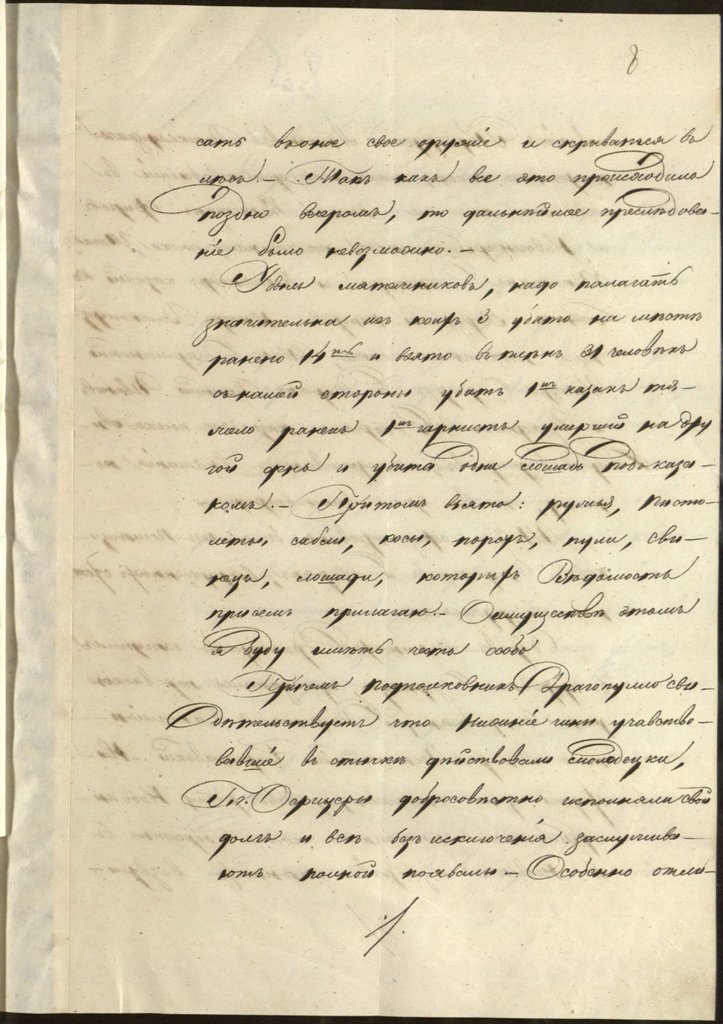 8
сать вконое свое оружiе и скрыватся въ
лѣсъ. — Такъ какъ все это происходило
поздно вечеромъ, то дальнѣйшее преслѣдова-
нiе было невозможно. —
Убыль мятежниковъ, надо палагать
значительна изъ коихъ 3 убито на мѣстѣ
ранено 14ть и взято въ плѣнъ 31 человѣкъ
съ нашей стороны убитъ 1нъ казакъ тя-
жело раненъ 1нъ гарнистъ умершiй на дру
гой день и убита одна лошадь подъ каза-
комъ. — Притомъ взято: ружья, писто-
леты, сабли, косы, порохъ, пули, сви-
нецъ, лошади, которыхъ Вѣдомость
присемъ прилагаю. — О имуществѣ этомъ
я буду имѣть честь особо
Причемъ подполковникъ Драгопулло сви-
дѣтельствуетъ что нижнiе чины учавство-
вавшiе в стычкѣ дѣйствовали молодецки,
Гг. Офицеры добросовѣстно исполняли свой
долгъ и всѣ безъ исключенiя заслужива-
ютъ полной похвалы. — Особенно отли-